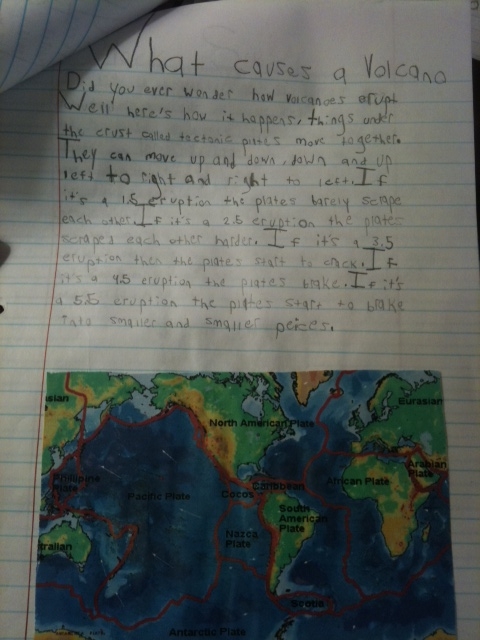 What causes a Volcano
Did you ever wonder how volcanoes erupt
Well here's how it happens, things under
the crust called tectonic plates move together.
They can move up and down, down and up
left to right and right to left. If
it's a 1.5 eruption the plates barely scrape
each other. If it's a 2.5 eruption the plates
scraped each other harder. If it's a 3.5
eruption then the plates start to crack. If
it's a 4.5 eruption the plates brake. If it's
a 5.5 eruption the plates start to brake
into smaller and smaller peices.
asian
Eurasian
North American Plate
Arabian
Plate
Philipine
Plate
Caribbean
African Plate
Pacific Plate
Cocos
South
American
Plate
Nazca
Plate
tralian
Scotia
Antarctic Plate